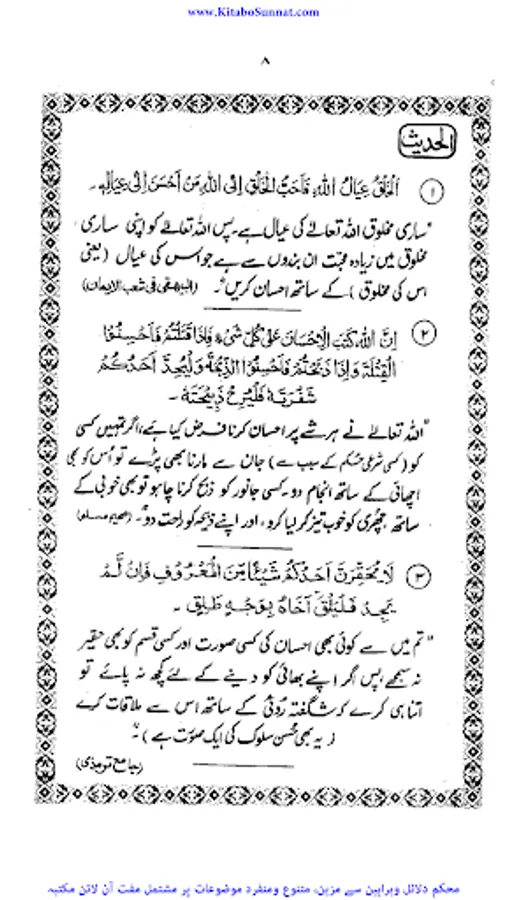 www.KitaboSunnat.com
۸
الحدیث
① اَلْخَلْقُ عِیَالُ اللّٰهِ فَاَحَبُّ الْخَلْقِ اِلَی اللّٰهِ مَنْ اَحْسَنَ اِلٰی عِیَالِهٖ۔
"ساری مخلوق اللہ تعالےٰ کی عیال ہے۔ پس اللہ تعالےٰ کو اپنی ساری
مخلوق میں زیادہ محبت ان بندوں سے ہے جو اس کی عیال (یعنی
اس کی مخلوق) کے ساتھ احسان کریں"۔ (البیھقی فی شعب الایمان)
② اِنَّ اللّٰهَ کَتَبَ الْاِحْسَانَ عَلٰی کُلِّ شَیْءٍ فَاِذَا قَتَلْتُمْ فَاَحْسِنُوْا
الْقِتْلَةَ وَاِذَا ذَبَحْتُمْ فَاَحْسِنُوا الذِّبْحَةَ وَلْیُحِدَّ اَحَدُکُمْ
شَفْرَتَهٗ فَلْیُرِحْ ذَبِیْحَتَهٗ۔
"اللہ تعالےٰ نے ہر شے پر احسان کرنا فرض کیا ہے، اگر تمہیں کسی
کو (کسی شرعی حکم کے سبب سے) جان سے مارنا بھی پڑے تو اُس کو بھی
اچھائی کے ساتھ انجام دو۔ کسی جانور کو ذبح کرنا چاہو تو بھی خوبی کے
ساتھ، چھُری کو خوب تیز کر لیا کرو، اور اپنے ذبیحہ کو راحت دو"۔ (صحیح مسلم)
③ لَا یَحْقِرَنَّ اَحَدُکُمْ شَیْئًا مِّنَ الْمَعْرُوْفِ فَاِنْ لَّمْ
یَجِدْ فَلْیَلْقَ اَخَاهُ بِوَجْهٍ طَلِیْقٍ۔
"تم میں سے کوئی بھی احسان کی کسی صورت اور کسی قسم کو بھی حقیر
نہ سمجھے، پس اگر اپنے بھائی کو دینے کے لئے کچھ نہ پائے تو
اتنا ہی کرے کہ شگفتہ رُوئی کے ساتھ اس سے ملاقات کرے
(یہ بھی حُسن سلوک کی ایک صورت ہے)"۔
(جامع ترمذی)
محکم دلائل وبراہین سے مزین، متنوع ومنفرد موضوعات پر مشتمل مفت آن لائن مکتبہ